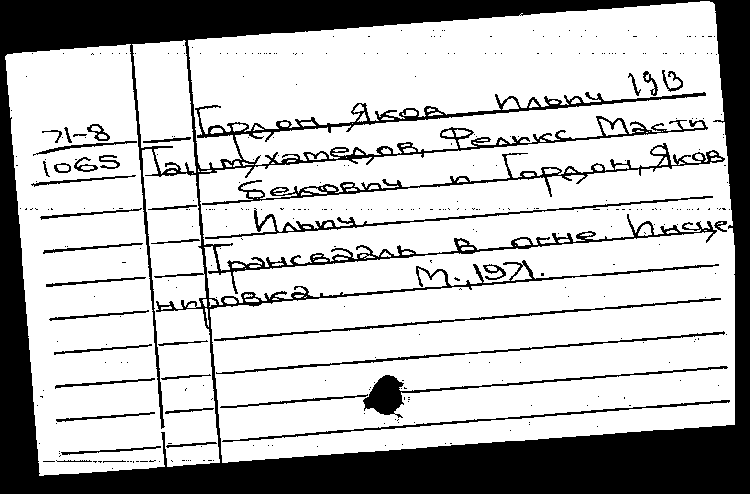 Гордон, Яков Ильич 1913
71-8
1065
Ташмухамедов, Феликс Масти-
бекович и Гордон, Яков
Ильич.
Трансвааль в огне. Инсце-
нировка... М., 1971.